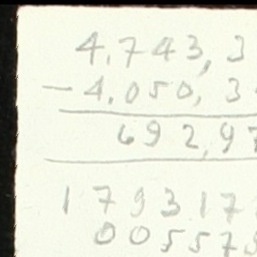 4.743,3
- 4.050,3
692,97
1793.17
005575